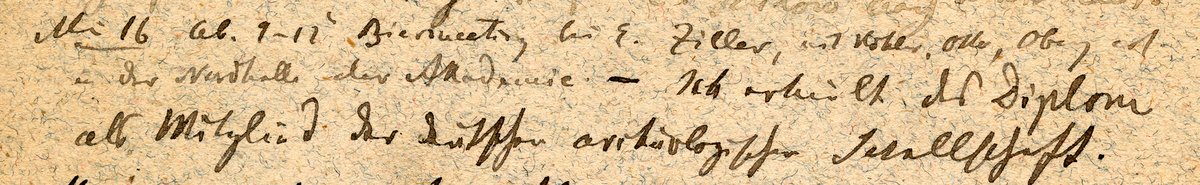 Mi 16 Ab. 9-12 Biermeeting bei E. Ziller, mit Köhler, Otto,
in der Nordhalle der Akademie. — Ich erhielt das Diplom
als Mitglied der deutschen archäologischen Gesellschaft.